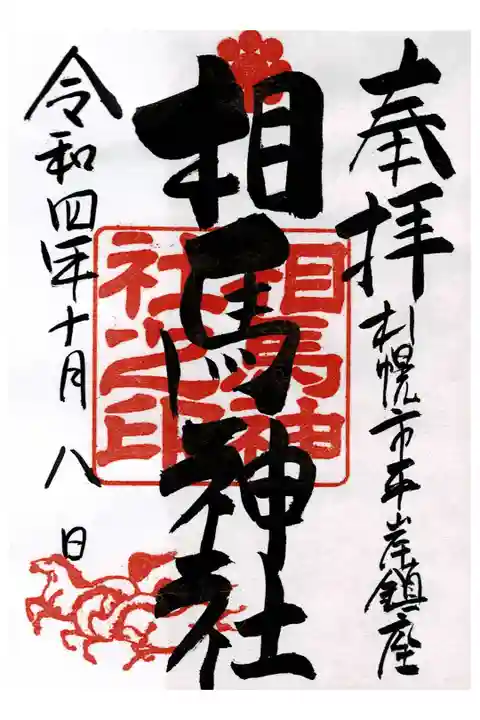 奉拝
札幌市平岸鎮座
相馬神社
相馬神社之印
令和四年十月八日